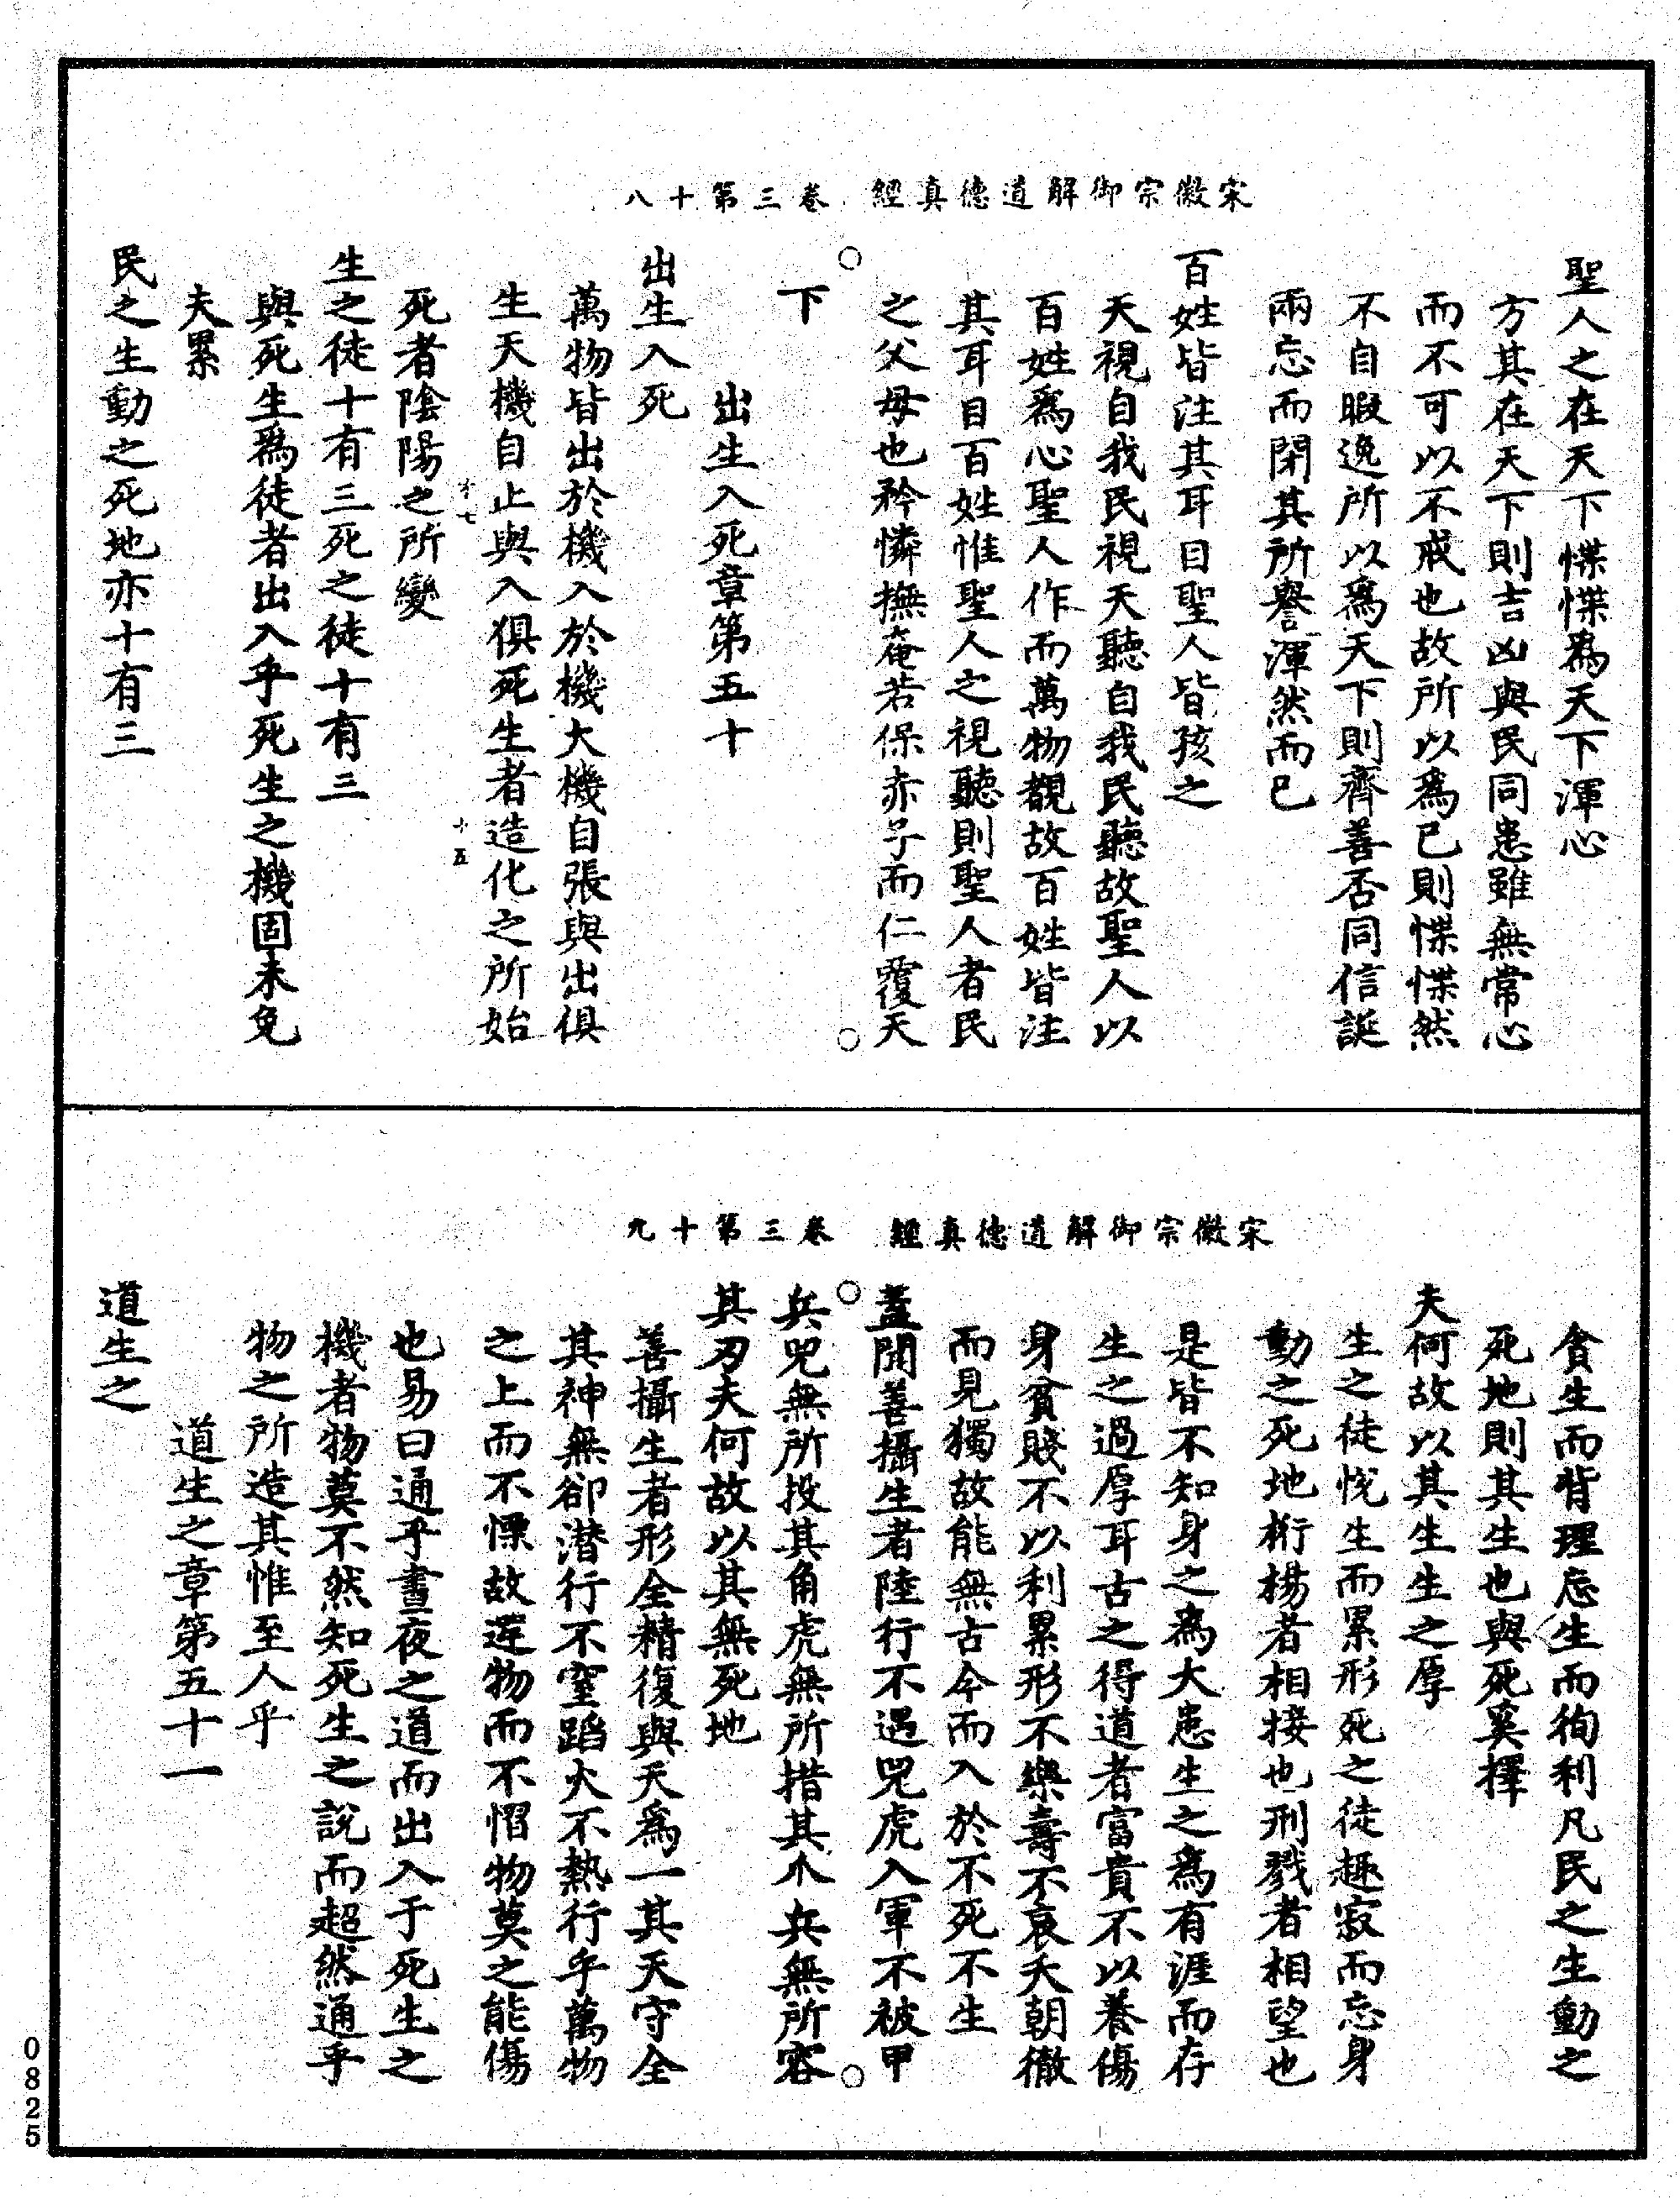 宋徽宗御解道德真經　卷三第十八
聖人之在天下惵惵爲天下渾心
方其在天下則吉凶與民同患雖無常心
而不可以不戒也故所以爲已則惵惵然
不自暇逸所以爲天下則齊善否同信誕
兩忘而閉其所譽渾然而已
百姓皆注其耳目聖人皆孩之
天視自我民視天聽自我民聽故聖人以
百姓爲心聖人作而萬物覩故百姓皆注
其耳目百姓惟聖人之視聽則聖人者民
之父母也矜憐撫奄若保赤子而仁覆天
下
出生入死章第五十
出生入死
萬物皆出於機入於機大機自張與出俱
生天機自止與入俱死生者造化之所始
才七　十五
死者陰陽之所變
生之徒十有三死之徒十有三
與死生爲徒者出入乎死生之機固未免
夫累
民之生動之死地亦十有三
宋徽宗御解道德真經　卷三第十九
貪生而背理忘生而徇利凡民之生動之
死地則其生也與死奚擇
夫何故以其生生之厚
生之徒悅生而累形死之徒趣寂而忘身
動之死地桁楊者相接也刑戮者相望也
是皆不知身之爲大患生之爲有涯而存
生之過厚耳古之得道者富貴不以養傷
身貧賤不以利累形不樂壽不哀夭朝徹
而見獨故能無古今而入於不死不生
蓋聞善攝生者陸行不遇兕虎入軍不被甲
兵兕無所投其角虎無所措其爪兵無所容
其刃夫何故以其無死地
善攝生者形全精復與天爲一其天守全
其神無卻潛行不窒蹈火不熱行乎萬物
之上而不慄故遻物而不慴物莫之能傷
也易曰通乎晝夜之道而出入于死生之
機者物莫不然知死生之說而超然通乎
物之所造其惟至人乎
道生之章第五十一
道生之
0825